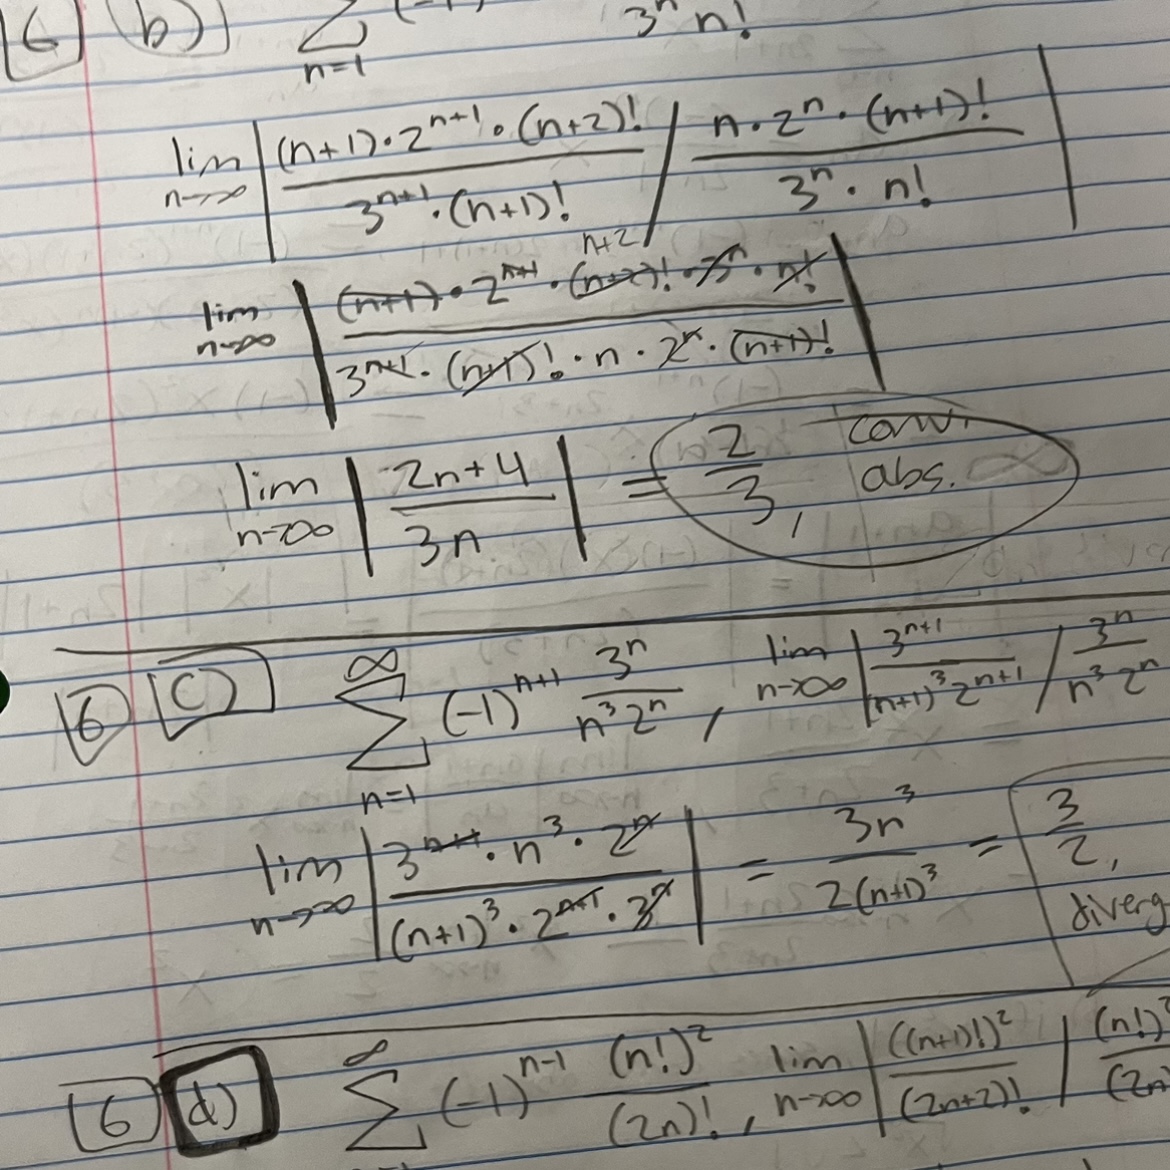 6 (b) ∑ n=1 (-1) 3ⁿ n!
lim n→∞ | (n+1)·2ⁿ⁺¹·(n+2)! / 3ⁿ⁺¹·(n+1)! / n·2ⁿ·(n+1)! / 3ⁿ·n! |
n+2
lim n→∞ | (n+1)·2ⁿ⁺¹·(n+2)!·3ⁿ·n! / 3ⁿ⁺¹·(n+1)!·n·2ⁿ·(n+1)! |
lim n→∞ | 2n+4 / 3n | = 2/3, conv. abs.
6 c) ∑ n=1 ∞ (-1)ⁿ⁺¹ 3ⁿ / n³2ⁿ, lim n→∞ | 3ⁿ⁺¹ / (n+1)³2ⁿ⁺¹ / 3ⁿ / n³2ⁿ
lim n→∞ | 3ⁿ⁺¹·n³·2ⁿ / (n+1)³·2ⁿ⁺¹·3ⁿ | = 3n³ / 2(n+1)³ = 3/2, diverg
6 d) ∑ ∞ (-1)ⁿ⁻¹ (n!)² / (2n)!, lim n→∞ | ((n+1)!)² / (2n+2)! / (n!)² / (2n)